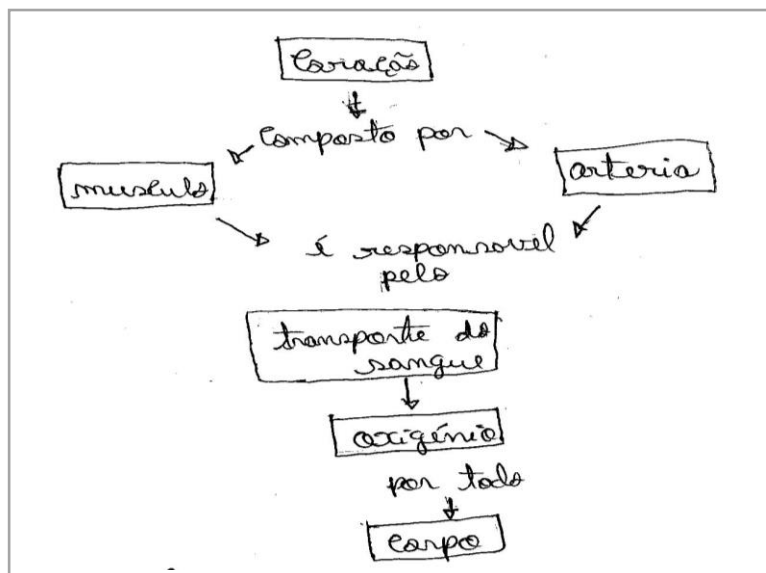 Coração
Composto por
musculo
arteria
é responsavel
pelo
transporte do
sangue
oxigénio
por todo
Corpo